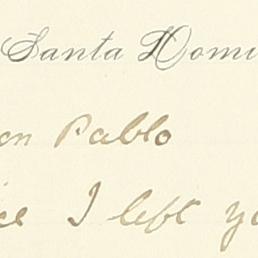 Santa Domi
on Pablo
ce I left yo